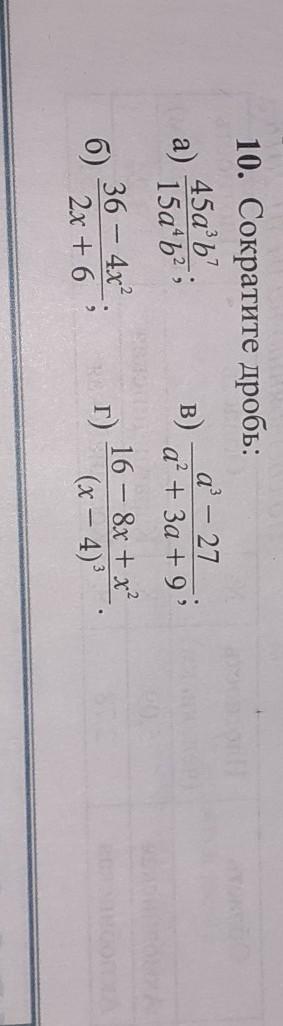 10. Сократите дробь:
а) \frac{45a^3b^7}{15a^4b^2}; в) \frac{a^3 - 27}{a^2 + 3a + 9};
б) \frac{36 - 4x^2}{2x + 6}; г) \frac{16 - 8x + x^2}{(x - 4)^3}.